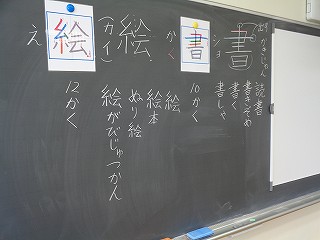 書
ショ
かく
書
10かく
読書
書きぞめ
書く
書しゃ
絵
(カイ)
え
絵
12かく
絵
絵本
ぬり絵
絵がびじゅつかん